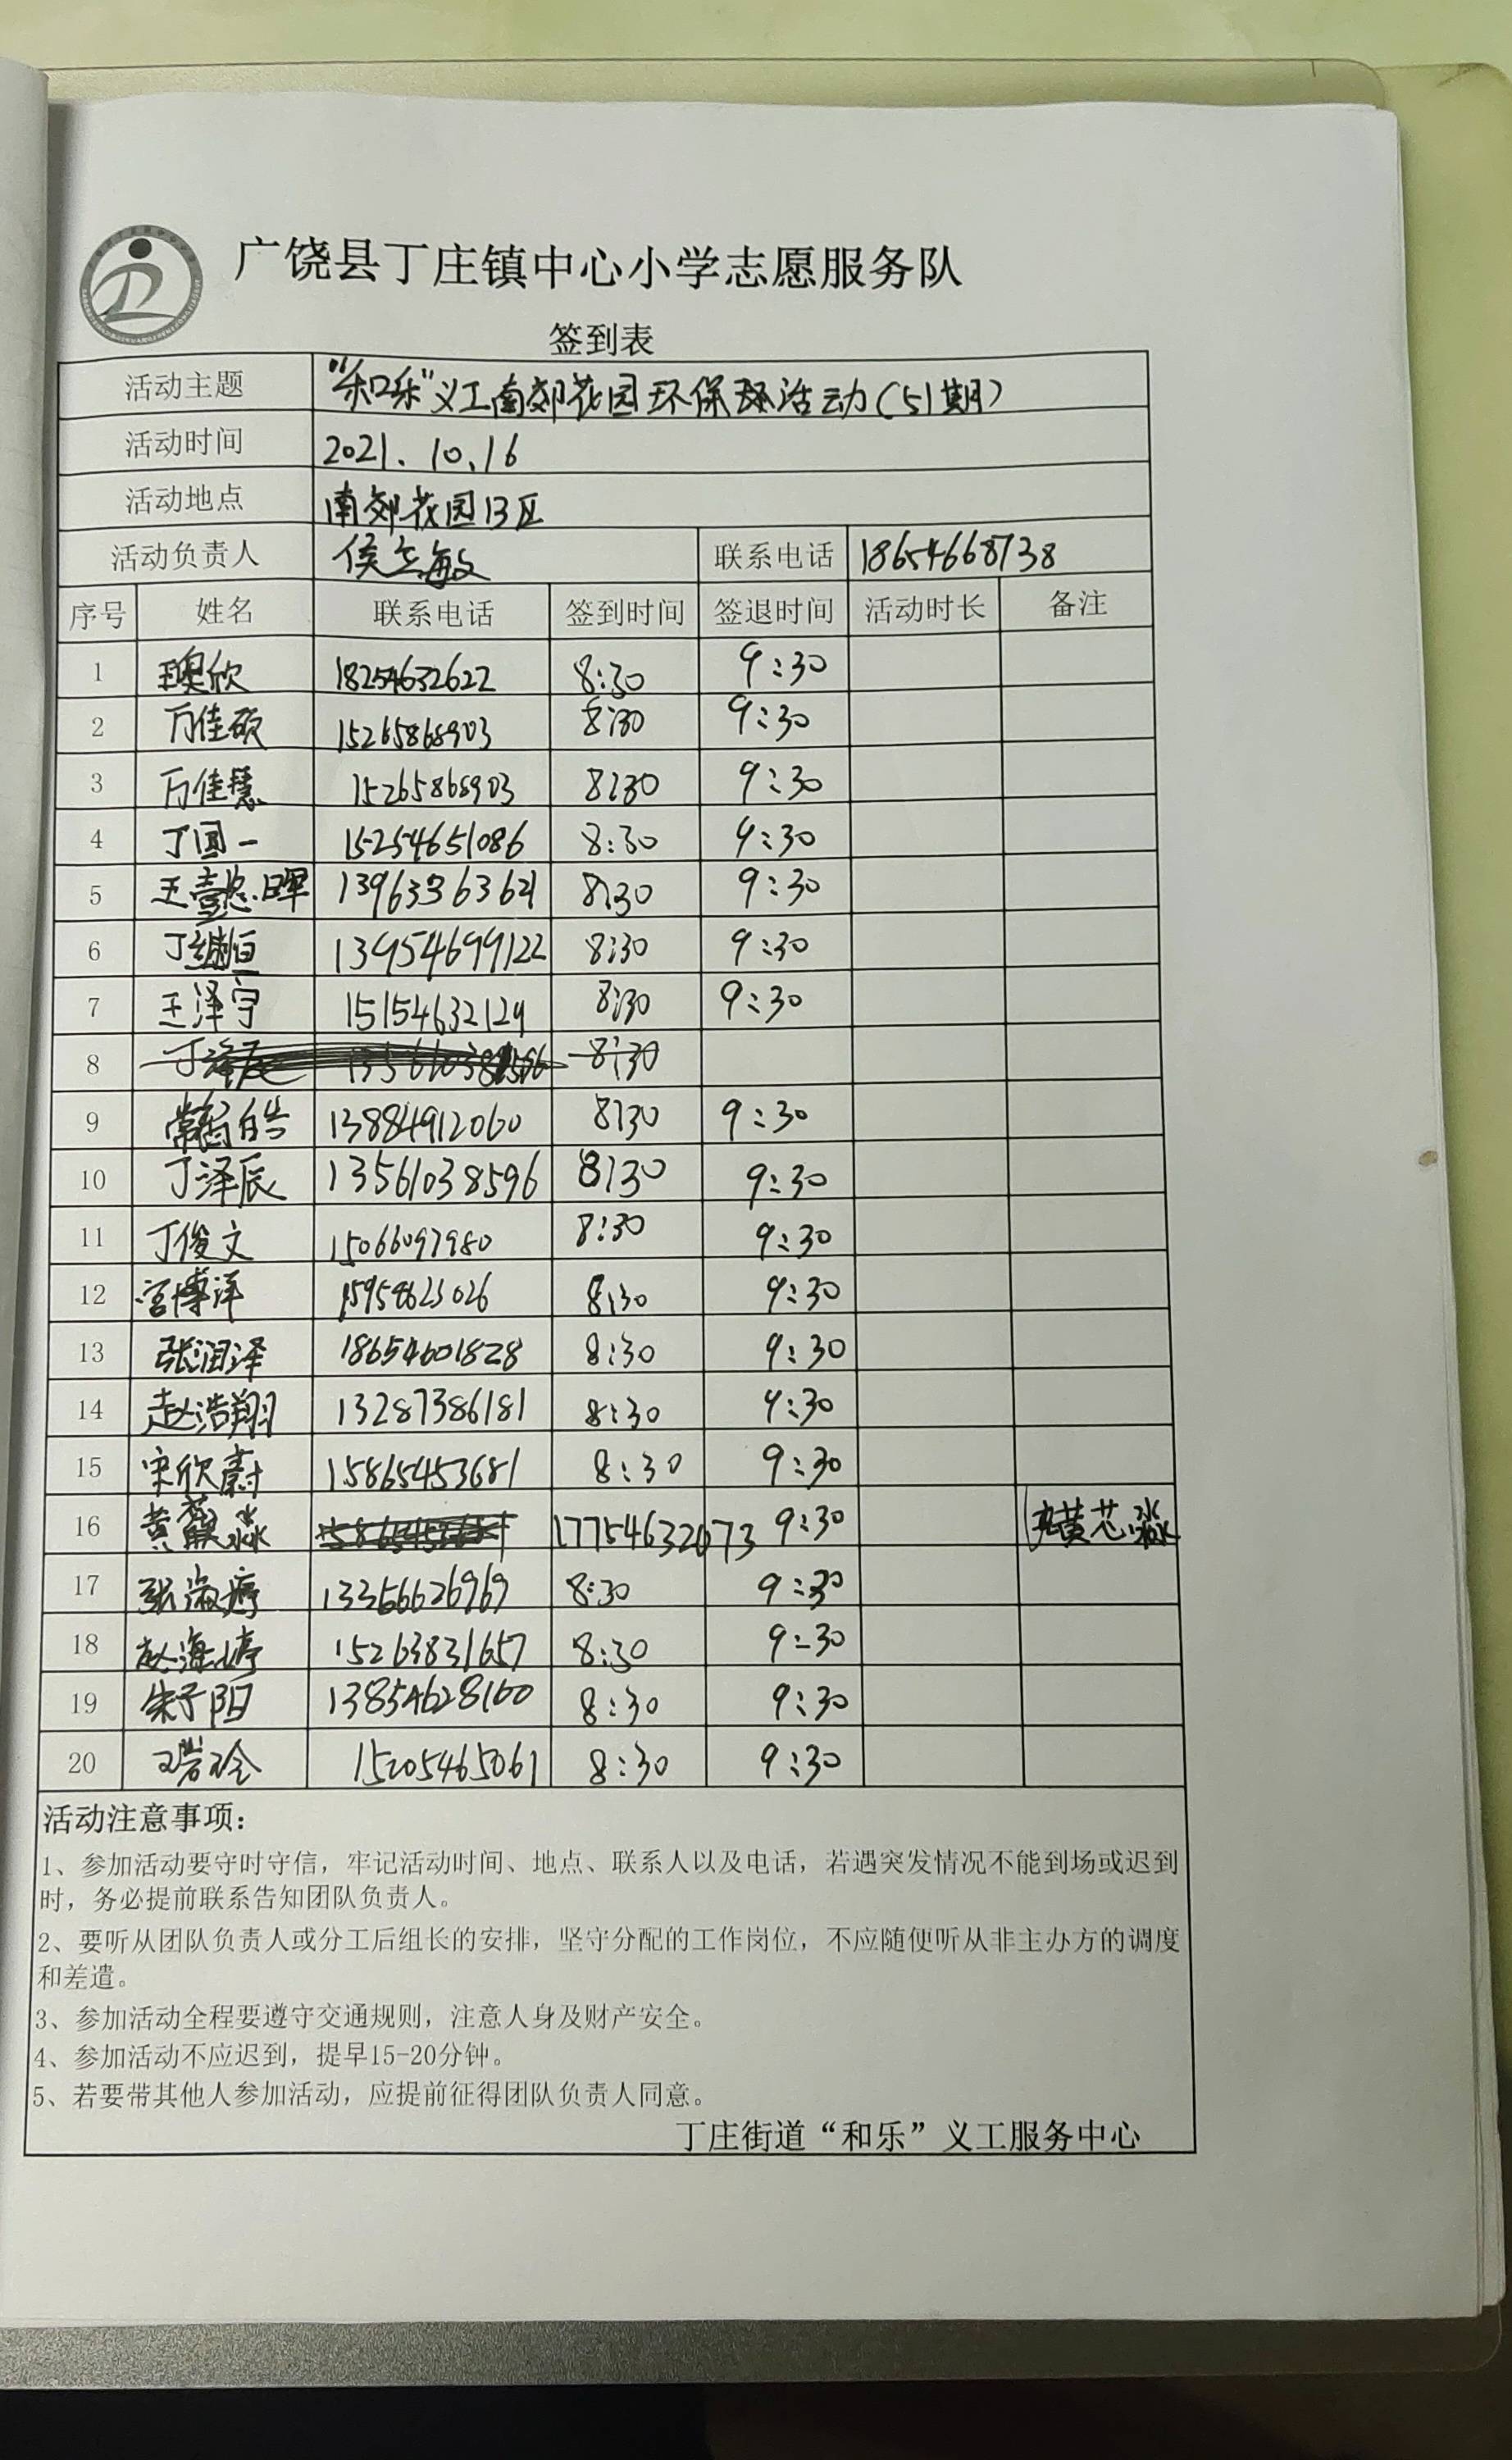 广饶县丁庄镇中心小学志愿服务队
签到表
活动主题 "和乐"义工南郊花园环保活动(51期)
活动时间 2021.10.16
活动地点 南郊花园B区
活动负责人 侯志敏 联系电话 18654668738
序号 姓名 联系电话 签到时间 签退时间 活动时长 备注
1 18254632622 8:30 9:30
2 万佳硕 15265868903 8:30 9:30
3 万佳慧 15265868903 8:30 9:30
4 丁国一 15254651086 8:30 9:30
5 王壹 13963363621 8:30 9:30
6 丁继恒 13954699122 8:30 9:30
7 王泽宇 15154632129 8:30 9:30
8 8:30
9 13884912060 8:30 9:30
10 丁泽辰 13561038596 8:30 9:30
11 丁俊文 15066097980 8:30 9:30
12 宫博洋 15958623026 8:30 9:30
13 张润泽 18654601828 8:30 9:30
14 赵浩翔 13287386181 8:30 9:30
15 宋欣蔚 15865453681 8:30 9:30
16 17754632073 9:30 黄芯淼
17 张淑婷 13366626969 8:30 9:30
18 赵海婷 15263831657 8:30 9:30
19 朱子阳 13854628160 8:30 9:30
20 15205465061 8:30 9:30
活动注意事项：
1、参加活动要守时守信，牢记活动时间、地点、联系人以及电话，若遇突发情况不能到场或迟到
时，务必提前联系告知团队负责人。
2、要听从团队负责人或分工后组长的安排，坚守分配的工作岗位，不应随便听从非主办方的调度
和差遣。
3、参加活动全程要遵守交通规则，注意人身及财产安全。
4、参加活动不应迟到，提早15-20分钟。
5、若要带其他人参加活动，应提前征得团队负责人同意。
丁庄街道“和乐”义工服务中心